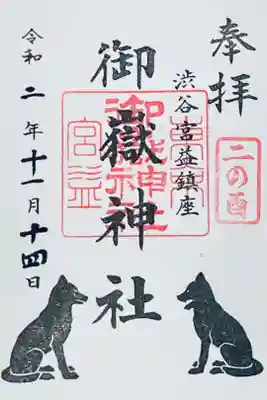 奉拝
二の酉
渋谷宮益鎮座
御嶽神社
令和二年十一月十四日